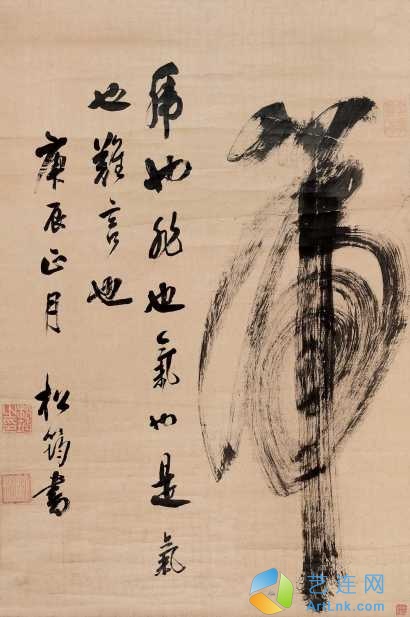 虎
虎也也氣也是氣
也難言也
庚辰正月
松筠書
艺连网
ArtLnk.com